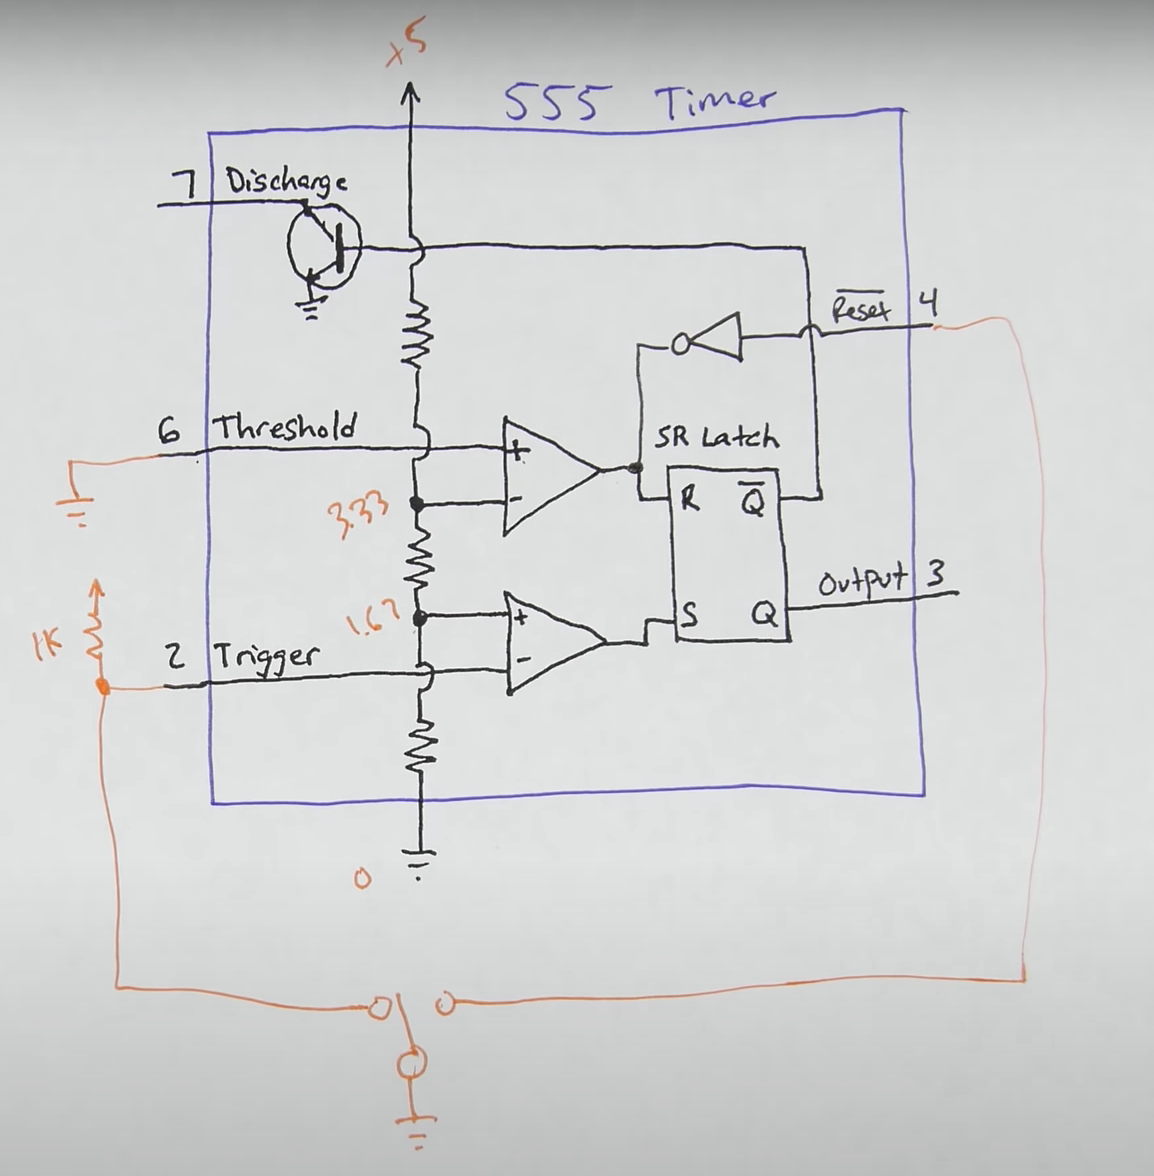 +5
555 Timer
7 Discharge
Reset 4
6 Threshold
+
SR Latch
-
R Q
3.33
Output 3
1.67
+
S Q
1K
2 Trigger
-
0